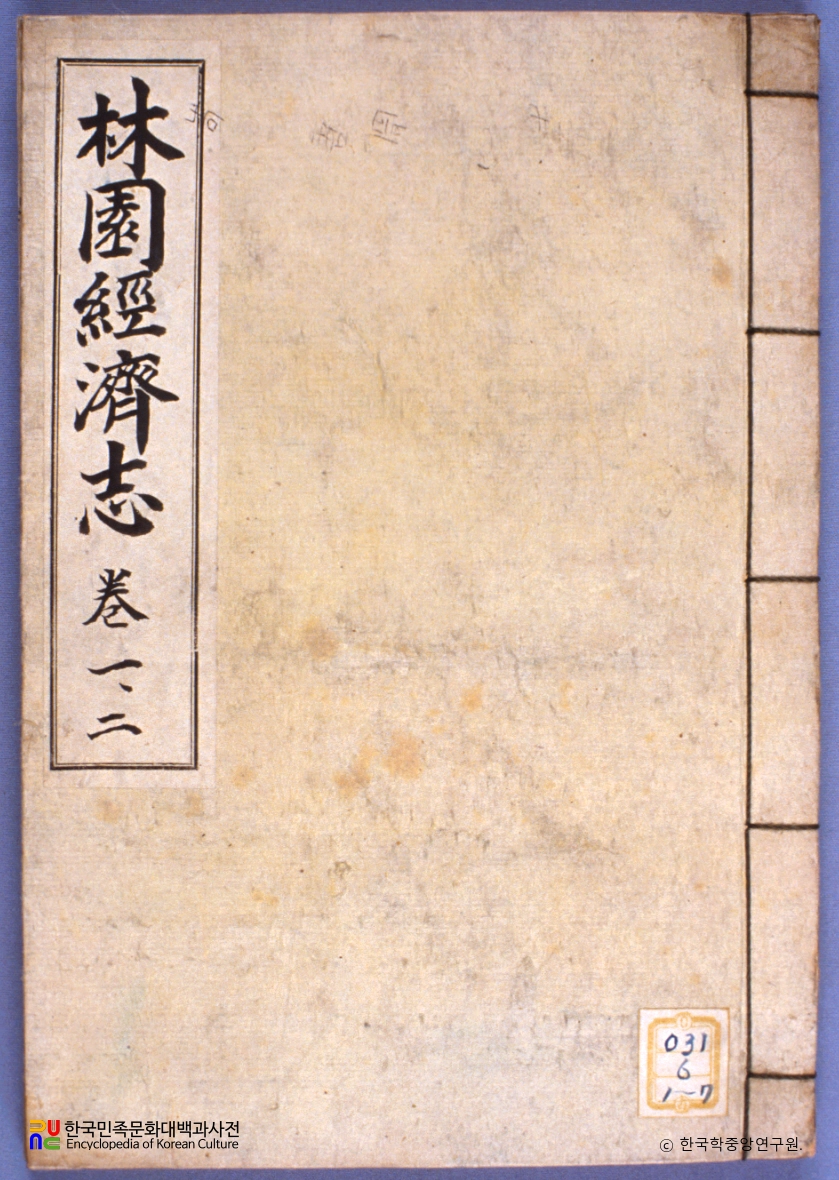 林園經濟志 卷一、二
031
6
1~7
한국민족문화대백과사전
Encyclopedia of Korean Culture
ⓒ 한국학중앙연구원.